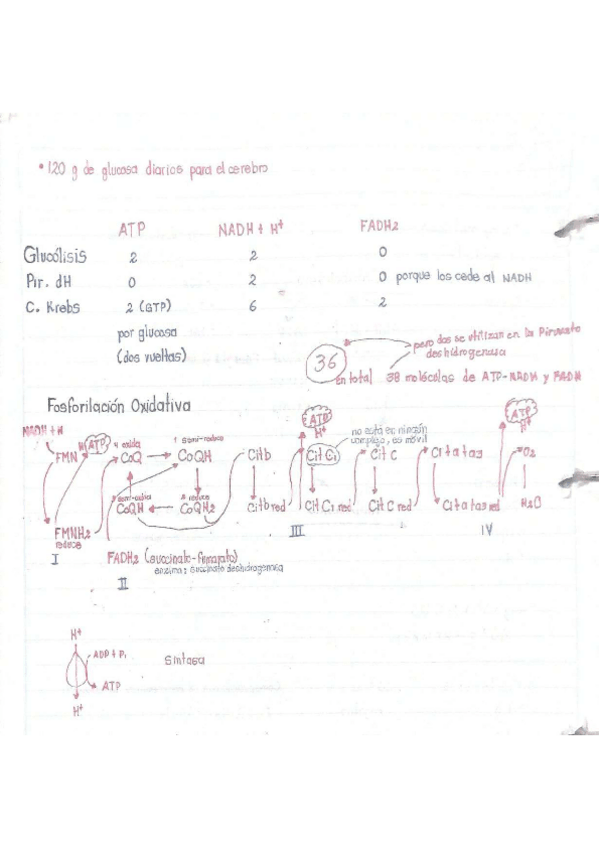 • 120 g de glucosa diarios para el cerebro
ATP NADH + H⁺ FADH2
Glucólisis 2 2 0
Pir. dH 0 2 0 porque los cede al NADH
C. Krebs 2 (GTP) 6 2
por glucosa
(dos vueltas)
pero dos se utilizan en la Piruvato
deshidrogenasa
36
en total 38 moléculas de ATP-NADH y FADH
Fosforilación Oxidativa
NADH + H
ATP
H⁺
ATP
H⁺
ATP
H⁺
no está en ningún
complejo, es móvil
oxida
semi-reduce
FMN CoQ CoQH Citb Cit C1 Cit C Cit a tas O2
semi-oxidica
reduce
FMNH2 CoQH CoQH2 Citbred Cit C1 red Cit C red Cit a tas red H2O
reduce
I
III
IV
FADH2 (succinato-fumarato)
enzima: succinato deshidrogenasa
II
H⁺
ADP + Pi
Sintasa
ATP
H⁺